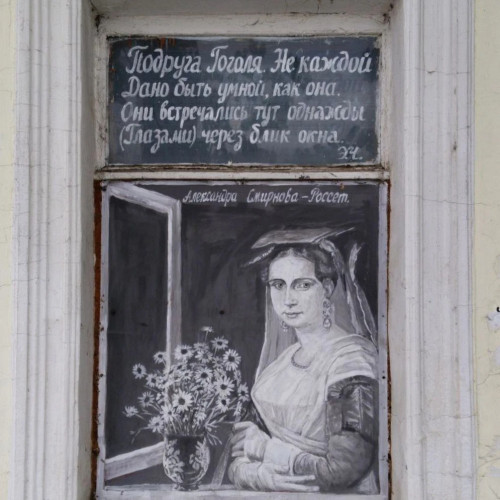 Подруга Гоголя. Не каждой
Дано быть умной, как она.
Они встречались тут однажды
(Глазами) через блик окна.
Э.Ч.
Александра Смирнова-Россет.